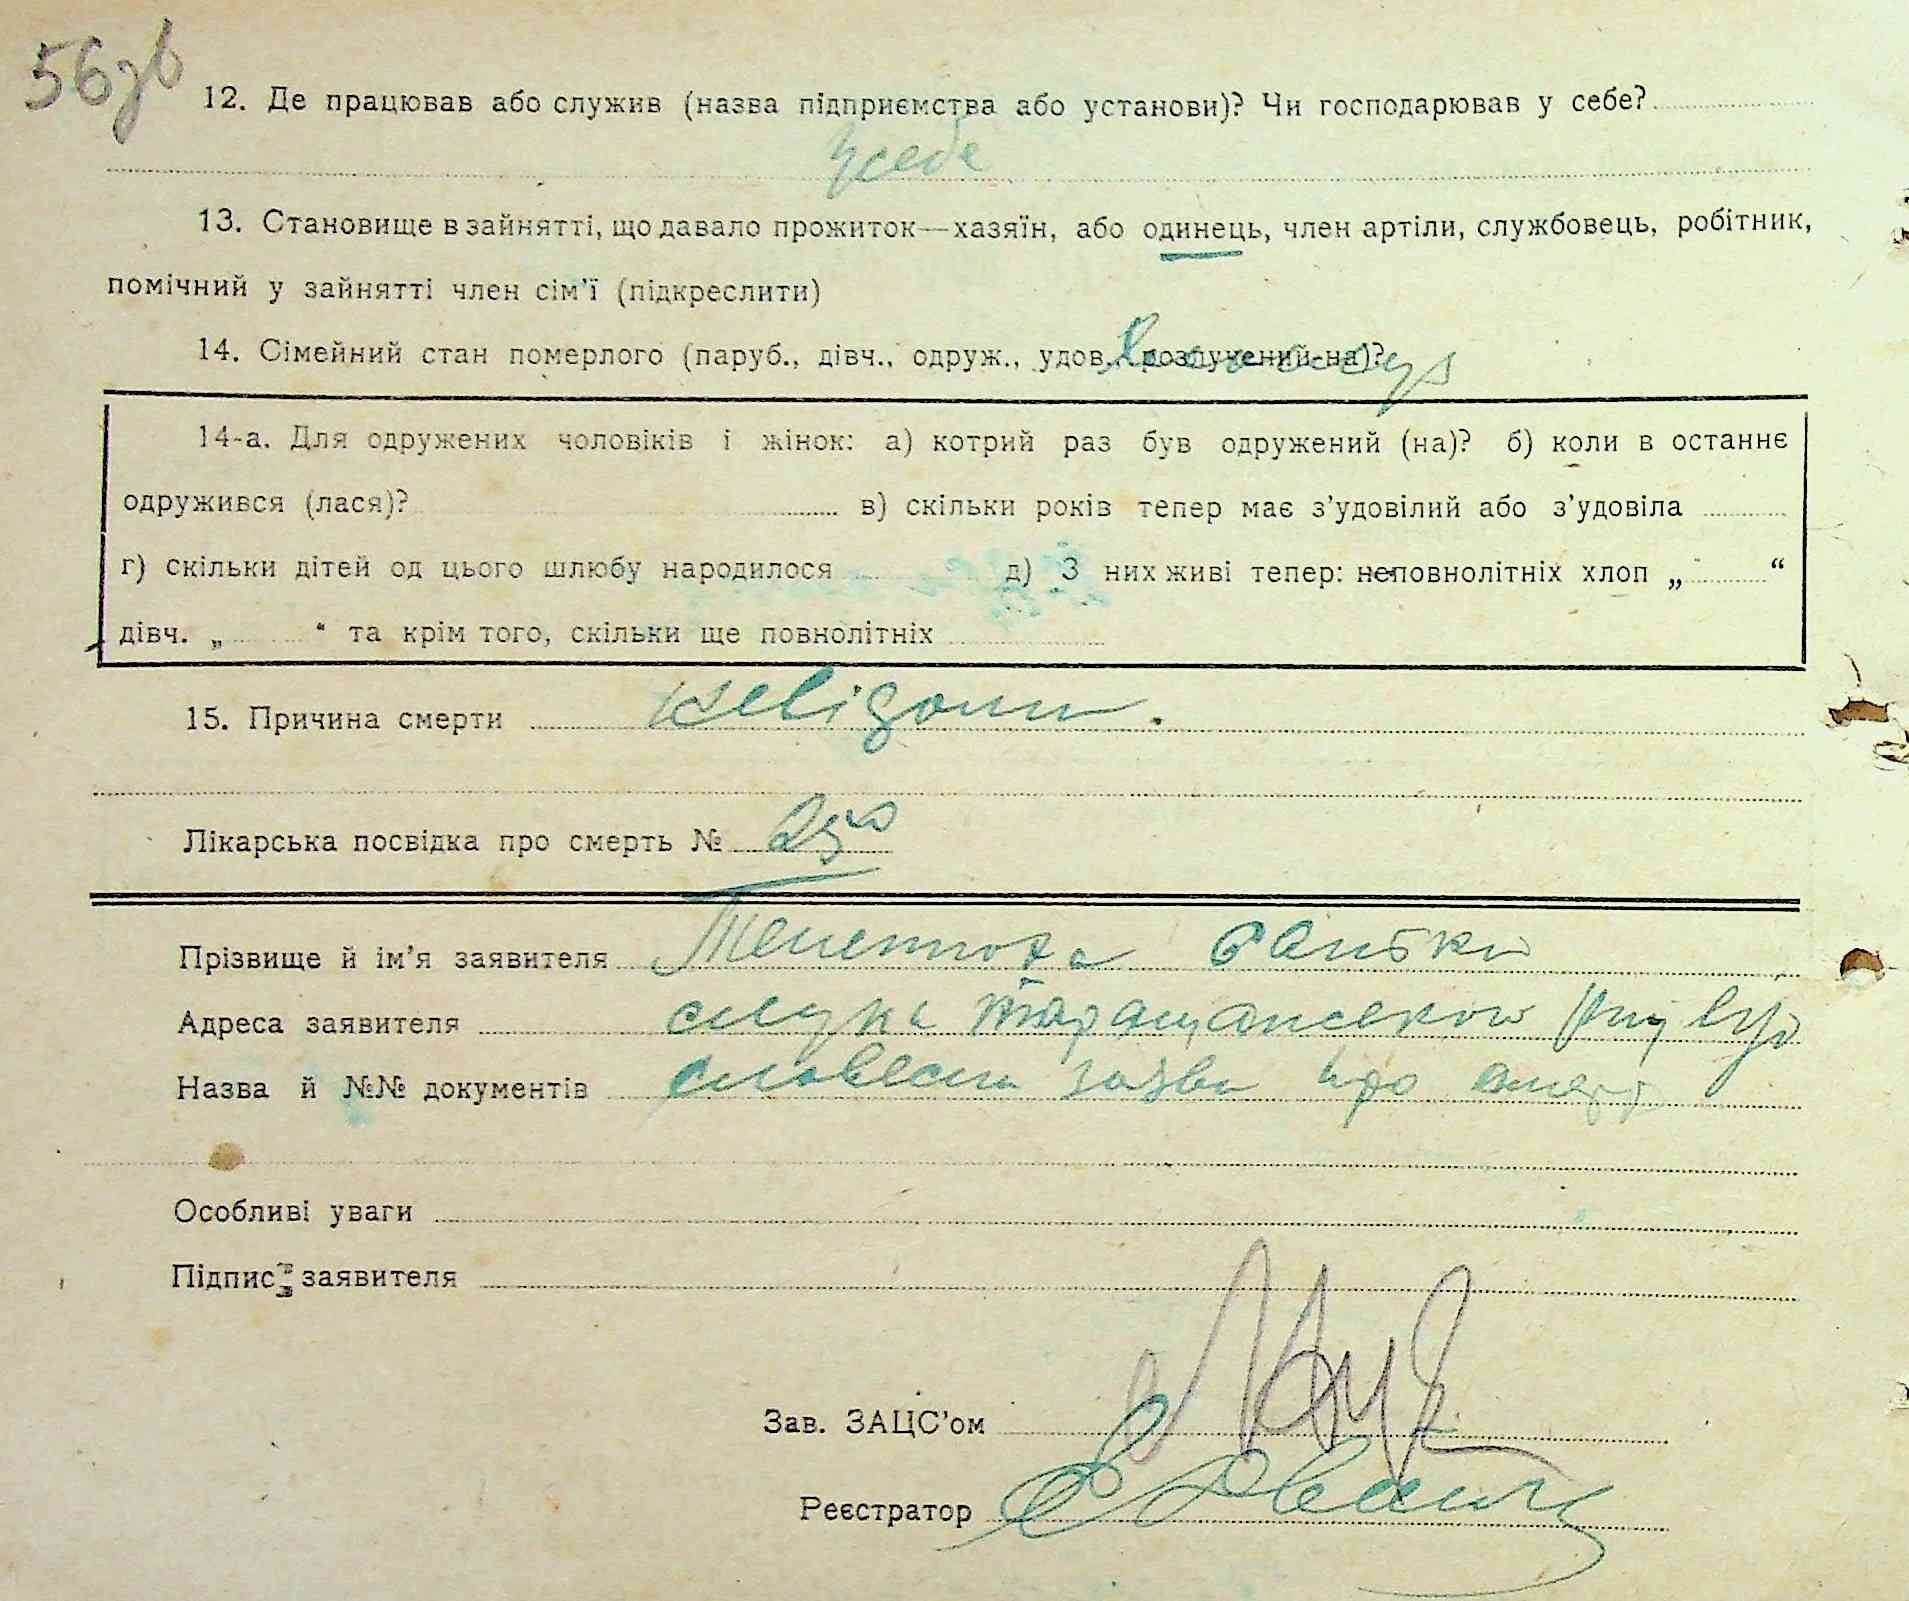 56зв
12. Де працював або служив (назва підприємства або установи)? Чи господарював у себе?
У себе
13. Становище в зайнятті, що давало прожиток—хазяїн, або одинець, член артіли, службовець, робітник,
помічний у зайнятті член сім'ї (підкреслити)
14. Сімейний стан померлого (паруб., дівч., одруж., удов., розлучений-на)?
14-а. Для одружених чоловіків і жінок: а) котрий раз був одружений (на)? б) коли в останнє
одружився (лася)? в) скільки років тепер має з'удовілий або з'удовіла
г) скільки дітей од цього шлюбу народилося д) З них живі тепер: неповнолітніх хлоп „ “
дівч. „ “ та крім того, скільки ще повнолітніх
15. Причина смерти невідома.
Лікарська посвідка про смерть №
Прізвище й ім'я заявителя Тенетноха
Адреса заявителя
Назва й №№ документів словесна заява про смерть
Особливі уваги
Підпис заявителя
Зав. ЗАЦС'ом
Реєстратор